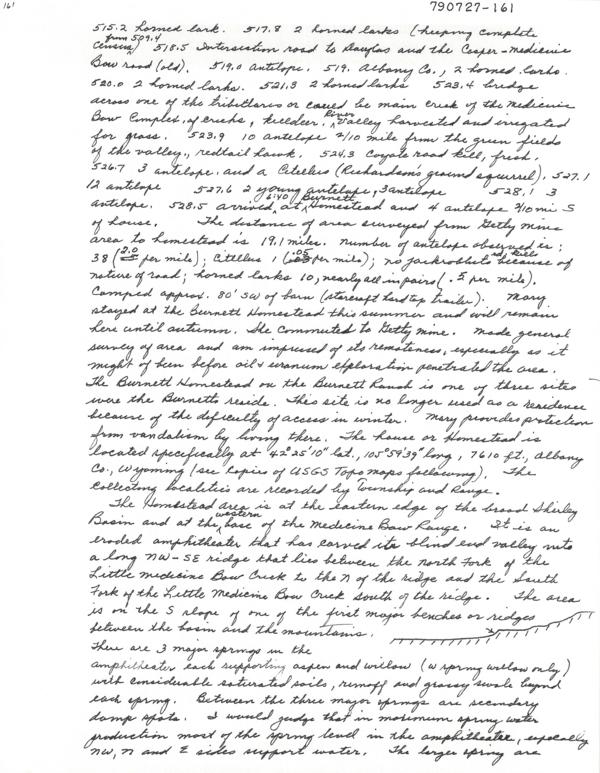 161
790727-161
515.2 horned lark. 517.8 2 horned larks (keeping complete
census from 509.4) 518.5 Intersection road to Douglas and the Casper-Medicine
Bow road (old). 519.0 antelope. 519. Albany Co., 2 horned larks.
520.0 2 horned larks. 521.3 2 horned larks 523.4 bridge
across one of the tributaries or could be main creek of the Medicine
Bow Complex of creeks, killdeer. River Valley harvested and irrigated
for grass. 523.9 10 antelope 2/10 mile from the green fields
of the valley, redtail hawk. 524.3 Coyote road kill, fresh.
526.7 3 antelope and a Citellus (Richardson's ground squirrel). 527.1
12 antelope 527.6 2 young antelope, 3 antelope 528.1 3
antelope. 528.5 arrived 6:40 at Burnett Homestead and 4 antelope 2/10 mi S
of house. The distance of area surveyed from Getty Mine
area to homestead is 19.1 miles. number of antelope observed is:
38 (2.0 per mile); Citellus 1 (.05 per mile); no jackrabbits because of
nature of road; horned larks 10, nearly all in pairs (.5 per mile).
Camped approx. 80' SW of barn (starcraft hardtop trailer). Mary
stayed at the Burnett Homestead this summer and will remain
here until autumn. She commuted to Getty mine. Made general
survey of area and am impressed of its remoteness, especially as it
might of been before oil & uranium exploration penetrated the area.
The Burnett Homestead on the Burnett Ranch is one of three sites
were the Burnetts reside. This site is no longer used as a residence
because of the difficulty of access in winter. Mary provides protection
from vandalism by living there. The house or Homestead is
located specifically at 42° 25' 10" lat., 105° 59' 39" long, 7610 ft., Albany
Co., Wyoming (see copies of USGS Topo maps following). The
collecting localities are recorded by Township and Range.
The Homestead area is at the eastern edge of the broad Shirley
Basin and at the western base of the Medicine Bow Range. It is an
eroded amphitheater that has carved its blind end valley into
a long NW-SE ridge that lies between the North Fork of the
Little Medicine Bow Creek to the N of the ridge and the South
Fork of the Little Medicine Bow Creek south of the ridge. The area
is on the S slope of one of the first major benches or ridges
between the basin and the mountains.
There are 3 major springs in the
amphitheater each supporting aspen and willow (W spring willow only)
with considerable saturated soils, runoff and grassy swale beyond
each spring. Between the three major springs are secondary
damp spots. I would judge that in maximum spring water
production most of the spring level in the amphitheater, especially
NW, N and E sides support water. The larger spring are